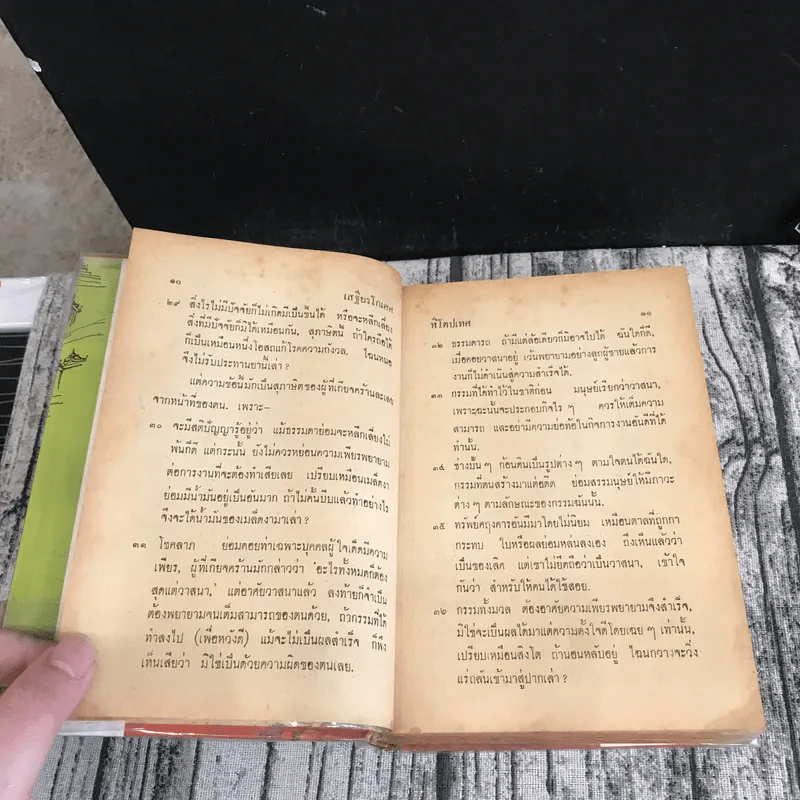 ๑๐
เสฐียรโกเศศ
๒๙ สิ่งไรไม่มีปัจจัยก็ไม่เกิดมีเป็นขึ้นได้ หรือจะหลีกเลี่ยง
สิ่งที่มีปัจจัยก็มิได้เหมือนกัน, สุภาษิตนี้ ถ้าใครถือได้
ก็เป็นเหมือนหนึ่งโอสถแก้โรคความกังวล, ไฉนหนอ
จึงไม่รับประทานยานี้เล่า ?
แต่ความข้อนี้มักเป็นสุภาษิตของผู้ที่เกียจคร้านละเลย
จากหน้าที่ของตน. เพราะ—
๓๐ จะมีสติปัญญารู้อยู่ว่า แม้ธรรมดาย่อมจะหลีกเลี่ยงไม่
พ้นก็ดี แต่กระนั้น ยังไม่ควรหย่อนความเพียรพยายาม
ต่อการงานที่จะต้องทำเสียเลย เปรียบเหมือนเมล็ดงา
ย่อมมีน้ำมันอยู่เป็นอันมาก ถ้าไม่คั้นบีบแล้วทำอย่างไร
จึงจะได้น้ำมันของเมล็ดงามาเล่า ?
๓๑ โชคลาภ ย่อมคอยท่าเฉพาะบุคคลผู้ใจเด็ดมีความ
เพียร, ผู้ที่เกียจคร้านมักกล่าวว่า 'อะไรทั้งหมดก็ต้อง
สุดแต่วาสนา,' แต่อาศัยวาสนาแล้ว ลงท้ายก็จำเป็น
ต้องพยายามจนเต็มสามารถของตนด้วย, ถ้ากรรมที่ได้
ทำลงไป (เพื่อหวังดี) แม้จะไม่เป็นผลสำเร็จ ก็พึง
เห็นเสียว่า มิใช่เป็นด้วยความผิดของตนเลย.
หิโตปเทศ
๑๑
๓๒ ธรรมดารถ ถ้ามีแต่ล้อเดียวก็มิอาจไปได้ ฉันใดก็ดี,
เมื่อคอยวาสนาอยู่ เว้นพยายามอย่างลูกผู้ชายแล้วการ
งานก็ไม่ดำเนินสู่ความสำเร็จได้.
๓๓ กรรมที่ได้ทำไว้ในชาติก่อน มนุษย์เรียกว่าวาสนา,
เพราะฉะนั้นจะประกอบกิจไร ๆ ควรให้เต็มความ
สามารถ และอย่ามีความย่อท้อในกิจการงานอันดีที่ได้
ทำนั้น.
๓๔ ช่างปั้น ๆ ก้อนดินเป็นรูปต่าง ๆ ตามใจตนได้ฉันใด,
กรรมที่ตนสร้างมาแต่อดีต ย่อมสรรมนุษย์ให้มีภาวะ
ต่าง ๆ ตามลักษณะของกรรมฉันนั้น.
๓๕ ทรัพย์คฤงคารอันมีมาโดยไม่นิยม เหมือนตาลที่ถูกกา
กระทบ ใบหรือผลย่อมหล่นลงเอง ถึงเห็นแล้วว่า
เป็นของเลิศ แต่เขาไม่ยึดถือว่าเป็นวาสนา, เข้าใจ
กันว่า สำหรับให้คนได้ใช้สอย.
๓๖ กรรมทั้งมวล ต้องอาศัยความเพียรพยายามจึงสำเร็จ,
มิใช่จะเป็นผลได้มาแต่ความตั้งใจดีโดยเฉย ๆ เท่านั้น,
เปรียบเหมือนสิงโต ถ้านอนหลับอยู่ ไฉนกวางจะวิ่ง
แร่ถลันเข้ามาสู่ปากเล่า ?